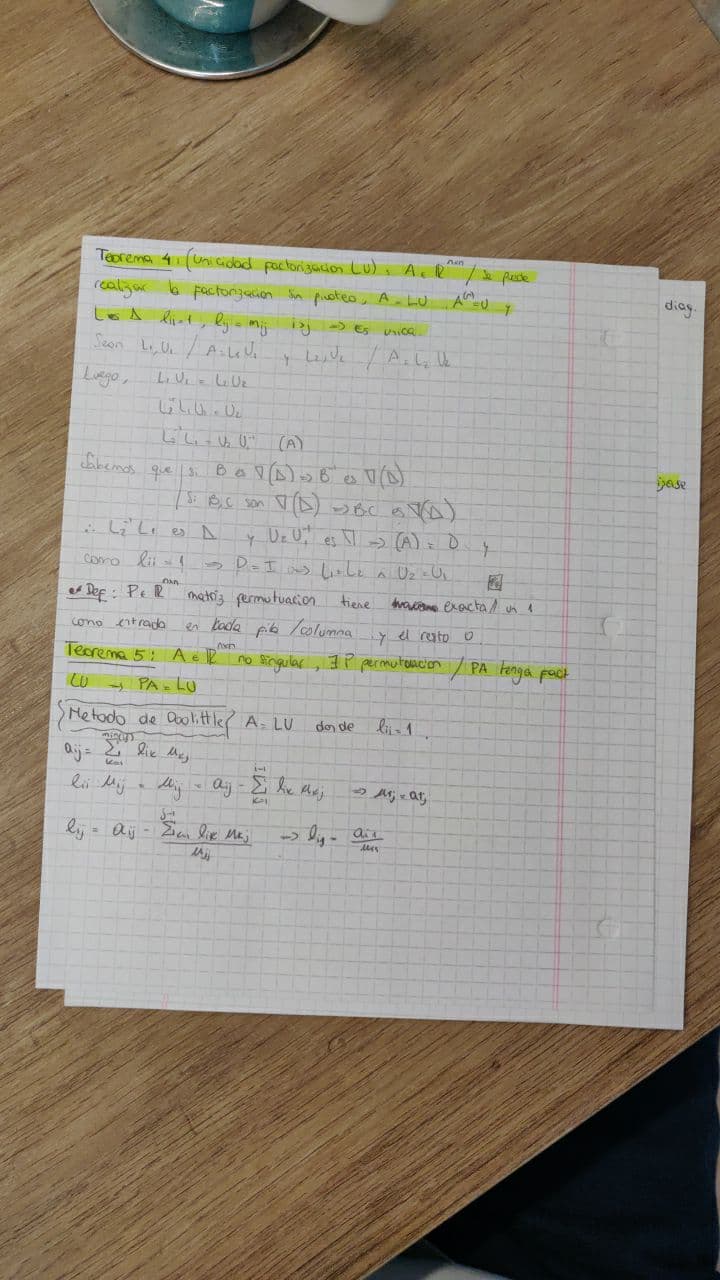 Teorema 4: (Unicidad factorizacion LU): A ∈ ℝⁿˣⁿ / se puede
realizar la factorizacion sin pivoteo, A = LU A⁽ⁿ⁾=U y
L es Δ lii=1, lij = mij i>j => es unica.
Sean L₁,U₁ / A=L₁U₁ y L₂,U₂ / A = L₂ U₂
Luego, L₁ U₁ = L₂U₂
L₂⁻¹ L₁U₁ = U₂
L₂⁻¹ L₁ = U₂ U₁⁻¹ (A)
Sabemos que / si B es ∇(Δ) => B⁻¹ es ∇(Δ)
/ Si B,C son ∇(Δ) => B.C es ∇(Δ)
∴ L₂⁻¹ L₁ es Δ y U₂ U₁⁻¹ es ∇ => (A) = D y
como lii = 1 => D = I => L₁=L₂ ∧ U₂=U₁
Def: P ∈ ℝⁿˣⁿ matriz permutuacion tiene exacta/ un 1
como entrada en kada fila /columna y el resto 0.
Teorema 5: A ∈ ℝⁿˣⁿ no singular, ∃ P permutuacion / PA tenga fact
LU → PA = LU
Metodo de Doolittle A = LU donde lii=1.
aij = Σ_{k=1}^{min(i,j)} lik ukj
lii uij = uij = aij - Σ_{k=1}^{i-1} lik ukj => u1j = a1j
lij = aij - Σ_{k=1}^{j-1} lik ukj / ujj => lij = ai1 / u11
diag.